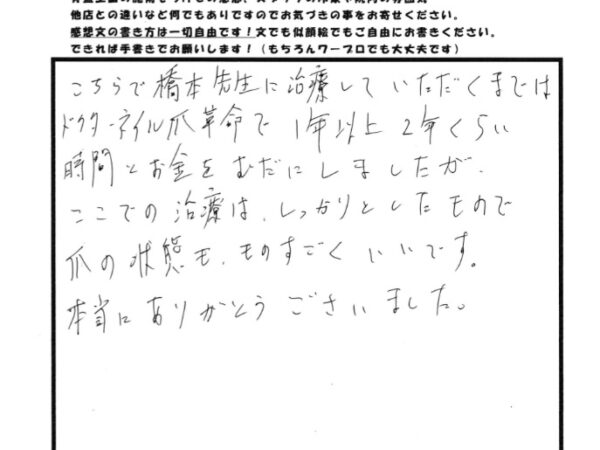 他店との違いなど何でもありですのでお気づきの事をお寄せください。
感想文の書き方は一切自由です！文でも似顔絵でもご自由にお書きください。
できれば手書きでお願いします！（もちろんワープロでも大丈夫です）
こちらで橋本先生に治療していただくまでは
ドクターネイル爪革命で 1年以上 2年くらい
時間とお金をむだにしましたが、
ここでの治療は、しっかりとしたもので
爪の状態も、ものすごくいいです。
本当にありがとうございました。